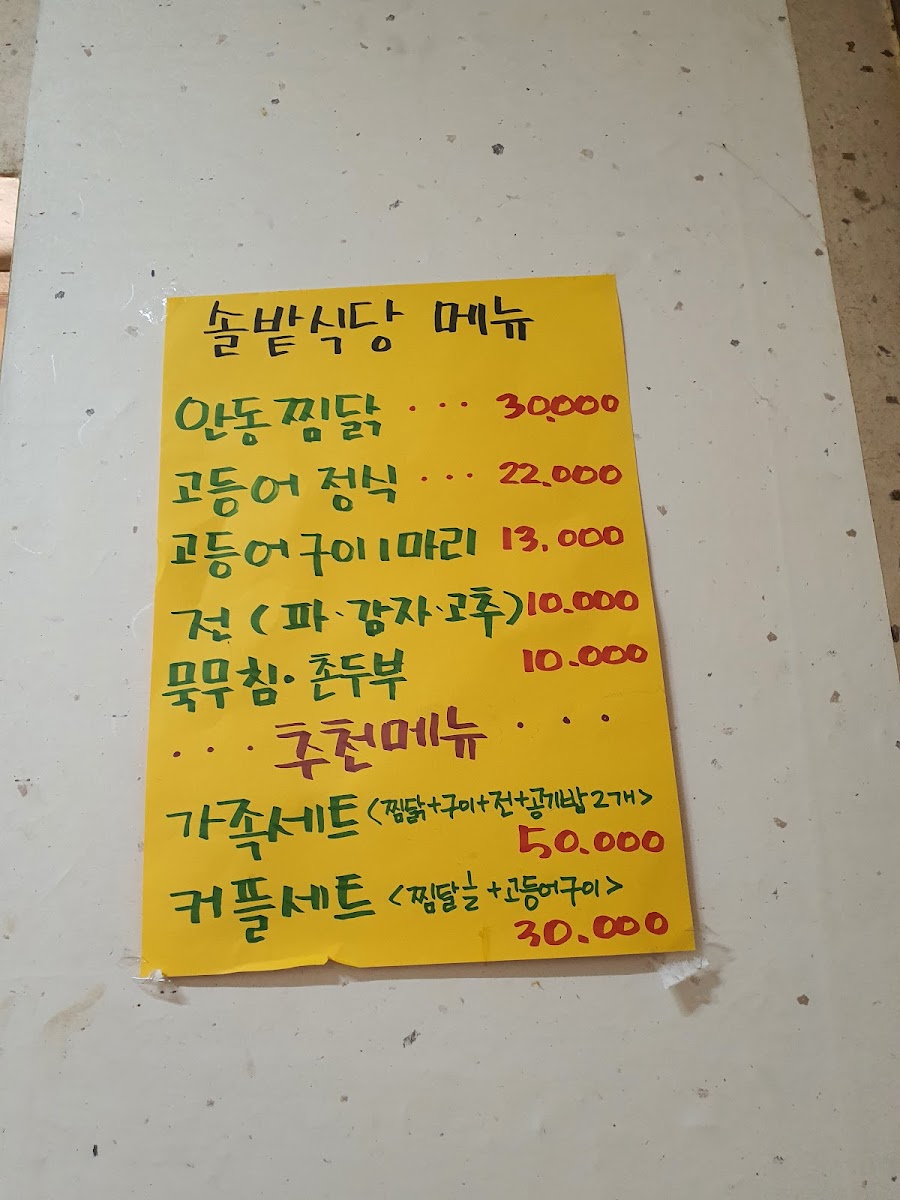 솔밭식당 메뉴
안동찜닭 ... 30,000
고등어 정식 ... 22.000
고등어구이 1마리 13.000
전 (파·감자·고추) 10.000
묵무침·촌두부 10.000
... 추천메뉴 ...
가족세트 <찜닭+구이+전+공기밥2개>
50.000
커플세트 <찜닭½+고등어구이>
30.000